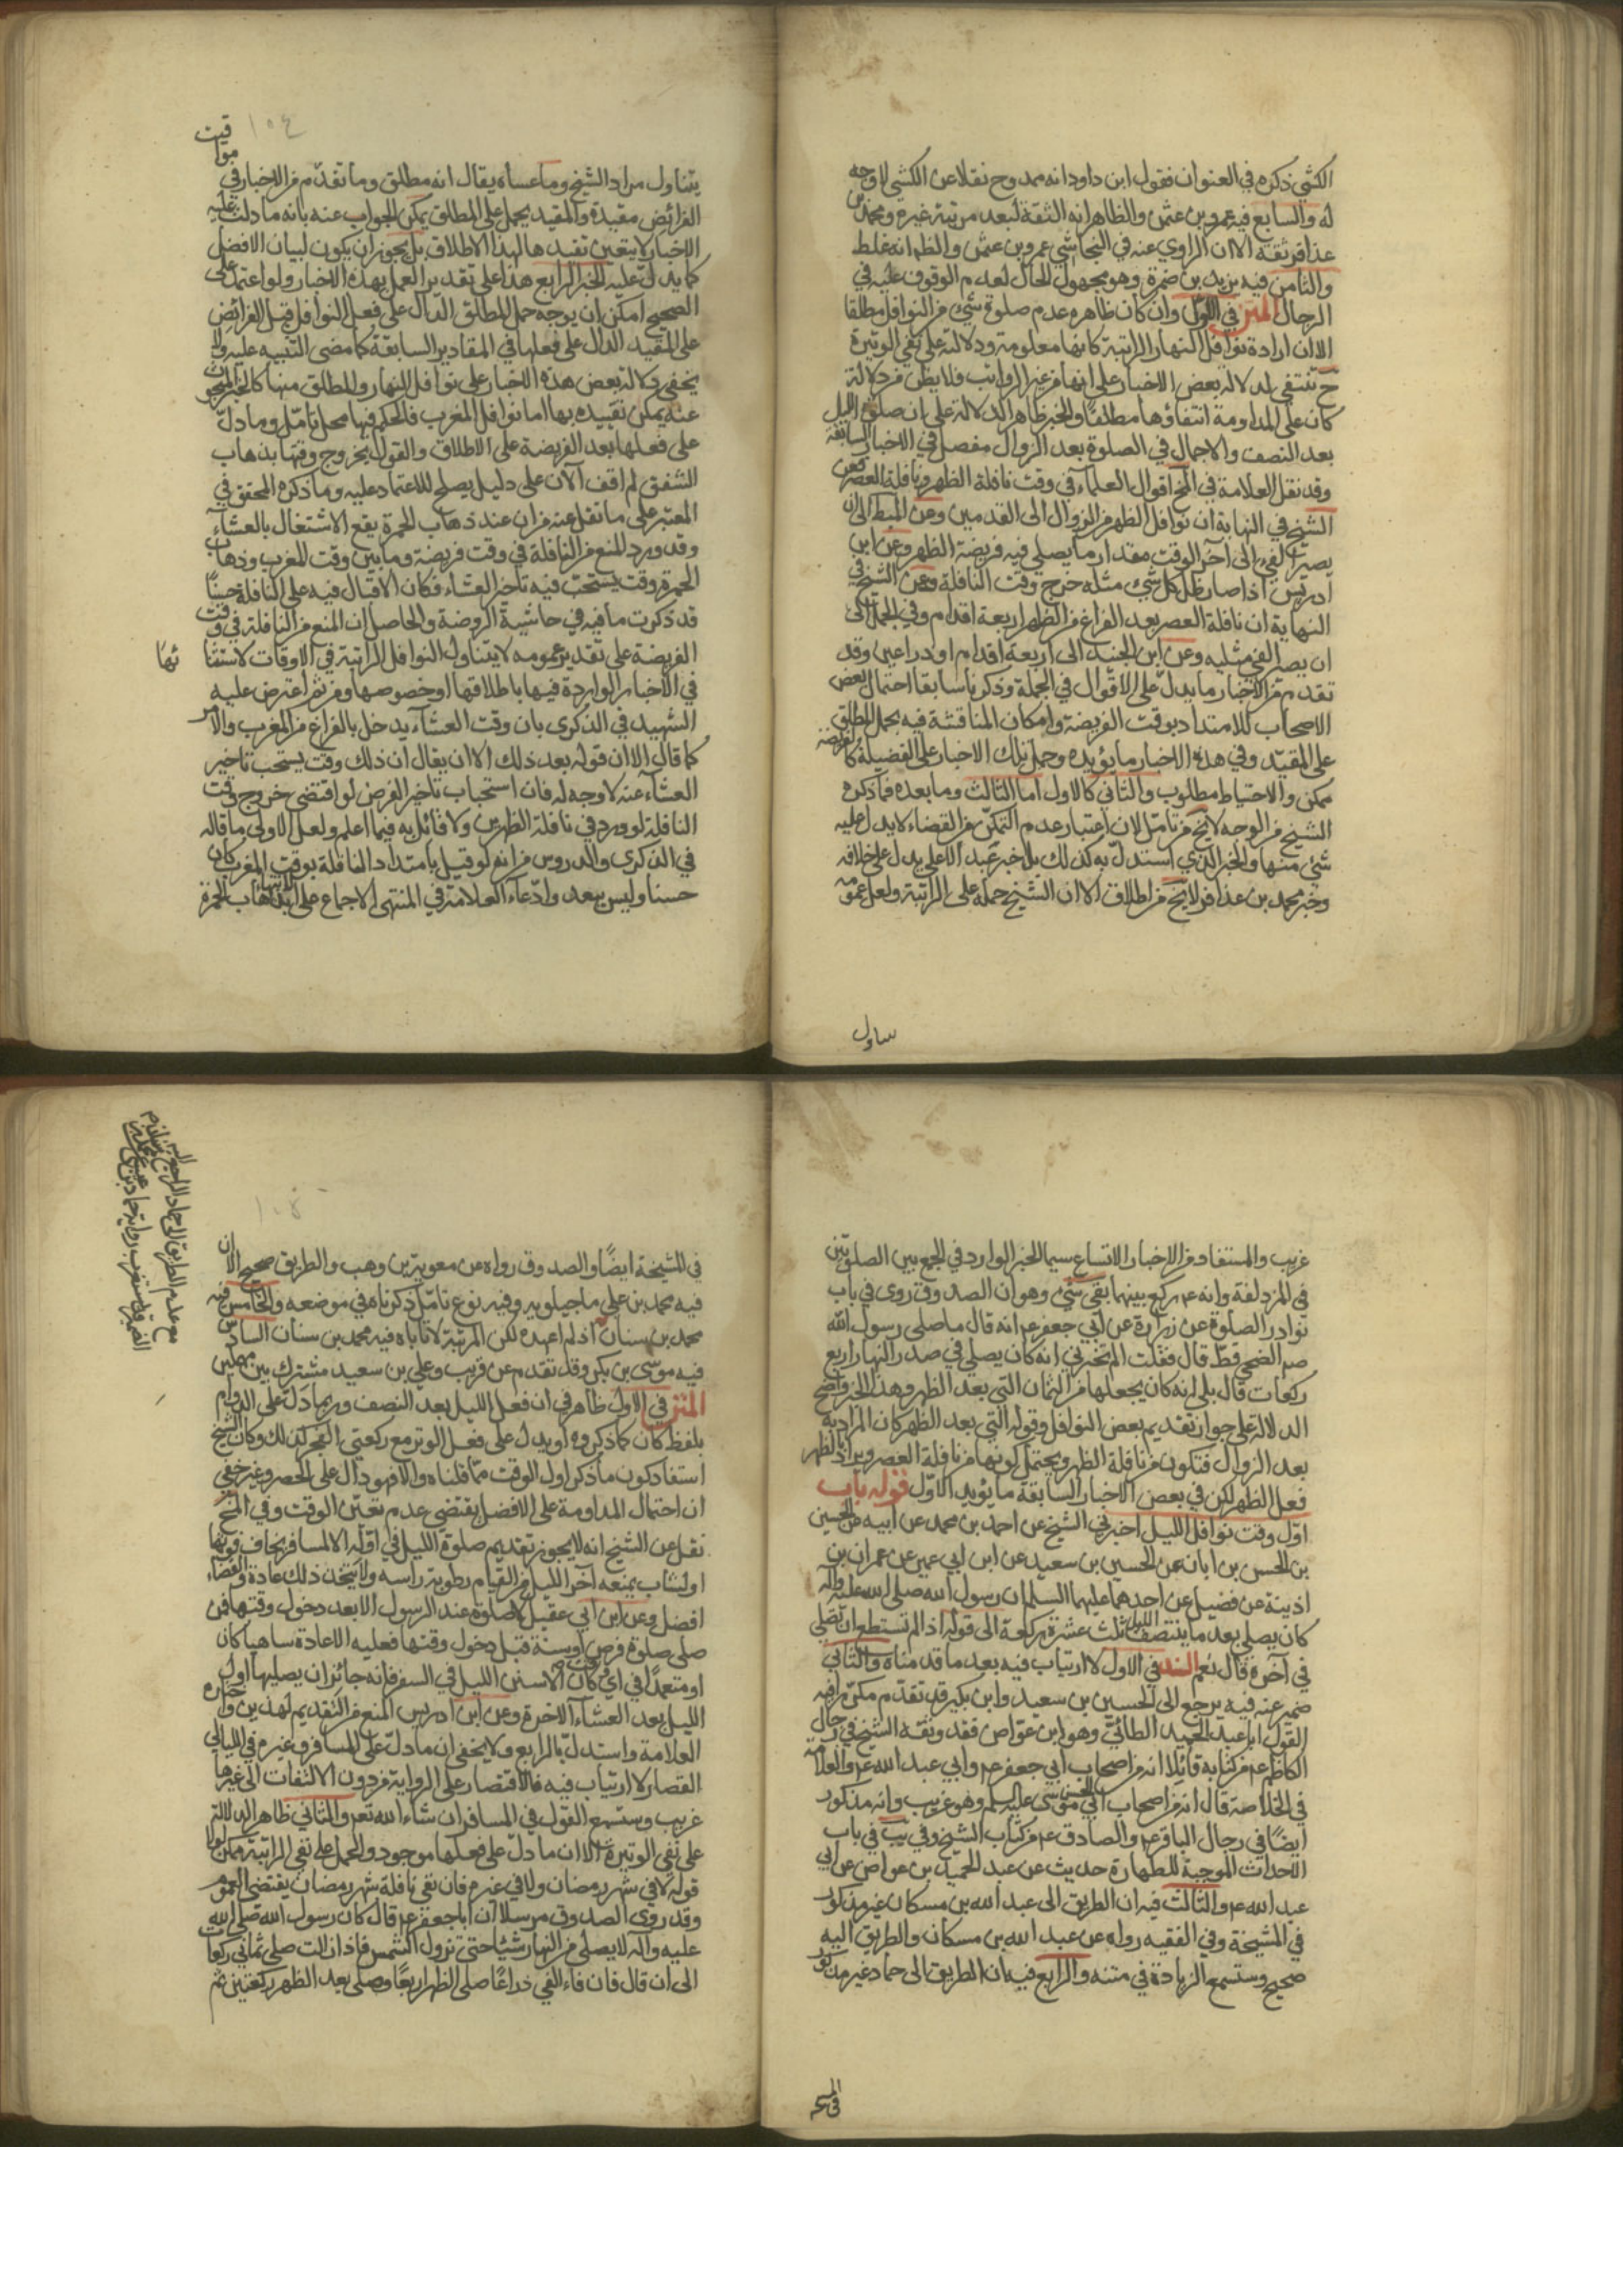 الكشي ذكره في العنوان فقول ابن داود انه ممدوح نقلا عن الكشي لا وجه
له والسابع فيه عمرو بن عثمن والظاهر انه الثقة لبعد مرتبة غيره ومحمد بن
عذافر ثقة الا ان الراوي عنه في النجاشي عمر بن عثمن والظ انه غلط
والثامن فيه يزيد بن ضمرة وهو مجهول الحال لعدم الوقوف عليه في
الرجال المتن في الاول وان كان ظاهره عدم صلوة شئ من النوافل مطلقا
الا ان ارادة نوافل النهار الراتبة كانها معلومة ودلالة على نفي الوتيرة
ح تنتفي لدلالة بعض الاخبار على انها من غير الرواتب فلا يظن من دلالة
كان على المداومة انتفاؤها مطلقا والخبر ظاهر الدلالة على ان صلوة الليل
بعد النصف والاجمال في الصلوة بعد الزوال مفصل في الاخبار السابقة
وقد نقل العلامة في المخ اقوال العلماء في وقت نافلة الظهر ونافلة العصر فعن
الشيخ في النهاية ان نوافل الظهر من الزوال الى القدمين وعن المبسط الى ان
يصير الفئ الى آخر الوقت مقدار ما يصلي فيه فريضة الظهر وعن ابن
ادريس اذا صار ظل كل شئ مثله خرج وقت النافلة وعن الشيخ في
النهاية ان نافلة العصر بعد الفراغ من الظهر اربعة اقدام وفي الجمل الى
ان يصير الفئ مثليه وعن ابن الجنيد الى اربعة اقدام او ذراعين وقد
تقدم من الاخبار ما يدل على الاقوال في الجملة وذكرنا سابقا احتمال بعض
الاصحاب للامتداد بوقت الفريضة وامكان المناقشة فيه بحمل المطلق
على المقيد وفي هذه الاخبار ما يؤيده وحمل تلك الاخبار على الفضيلة كالفريضة
ممكن والاحتياط مطلوب والثاني كالاول اما الثالث وما بعده فما ذكره
الشيخ من الوجه لا يخ من تامل لان اعتبار عدم التمكن من القضاء لا يدل عليه
شئ منها والخبر الذي استدل به كذلك بل خبر عبد الاعلى يدل على خلافه
وخبر محمد بن عذافر لا يخ من اطلاق الا ان الشيخ حمله على الراتبة ولعل عمومه
يتناول
١٥٤
يتناول مراد الشيخ وما عساه يقال انه مطلق وما تقدم من الاخبار في مواقيت
الفرائض مقيدة والمقيد يحمل على المطلق يمكن الجواب عنه بانه ما دلت عليه
الاخبار لا يتعين تقييدها لهذا الاطلاق بل يجوز ان يكون لبيان الافضل
كما يدل عليه الخبر الرابع هذا على تقدير العمل بهذه الاخبار ولو اعتمد على
الصحيح امكن ان يوجه حمل المطلق الدال على فعل النوافل قبل الفرائض
على المقيد الدال على فعلها في المقادير السابقة كما مضى التنبيه عليه ولا
يخفى دلالة بعض هذه الاخبار على نوافل النهار والمطلق منها كالخبر المبحوث
عنه يمكن تقييده بها اما نوافل المغرب فالحكم فيها محل تامل وما دل
على فعلها بعد الفريضة على الاطلاق والقول بخروج وقتها بذهاب
الشفق لم اقف الآن على دليل يصلح للاعتماد عليه وما ذكره المحقق في
المعتبر على ما نقل عنه من ان عند ذهاب الحمرة يقع الاشتغال بالعشاء
وقد ورد المنع من النافلة في وقت فريضة وما بين وقت المغرب وذهاب
الحمرة وقت يستحب فيه تاخر العشاء فكان الاقبال فيه على النافلة حسنا
قد ذكرت ما فيه في حاشية الروضة والحاصل ان المنع من النافلة في وقت
الفريضة على تقدير عمومه لا يتناول النوافل الراتبة في الاوقات لاستفا ئها
في الاخبار الواردة فيها باطلاقها او خصوصها ومن ثم اعترض عليه
الشهيد في الذكرى بان وقت العشاء يدخل بالفراغ من المغرب والامر
كما قال الا ان قوله بعد ذلك الا ان يقال ان ذلك وقت يستحب تاخير
العشاء عنه لا وجه له فان استحباب تاخير الفرض لو اقتضى خروج وقت
النافلة لورد في نافلة الظهرين ولا قائل به فيما اعلم ولعل الاولى ما قاله
في الذكرى والدروس من انه لو قيل بامتداد النافلة بوقت المغرب كان
حسنا وليس ببعيد وادعاء العلامة في المنتهى الاجماع على انتهائها بذهاب الحمرة
غريب والمستفاد من الاخبار الاتساع سيما الخبر الوارد في الجمع بين الصلوتين
في المزدلفة وانه عم ركع بينهما بقي شئ وهو ان الصدوق روى في باب
نوادر الصلوة عن زرارة عن ابي جعفر عم انه قال ما صلى رسول الله
صم الضحى قط قال فقلت الم تخبرني انه كان يصلي في صدر النهار اربع
ركعات قال بلى انه كان يجعلها من الثمان التي بعد الظهر وهذا الخبر واضح
الدلالة على جواز تقديم بعض النوافل وقوله التي بعد الظهر كان المراد به
بعد الزوال فتكون من نافلة الظهر ويحتمل كونها من نافلة العصر ويراد بالظهر
فعل الظهر لكن في بعض الاخبار السابقة ما يؤيد الاول قوله باب
اول وقت نوافل الليل اخبرني الشيخ عن احمد بن محمد عن ابيه عن الحسين
بن الحسن بن ابان عن الحسين بن سعيد عن ابن ابي عمير عن عمران بن
اذينة عن فضيل عن احدهما عليهما السلم ان رسول الله صلى الله عليه وآله
كان يصلي بعد ما ينتصف الليل ثلث عشرة ركعة الى قوله اذا لم تستطع ان تصلي
في آخره قال نعم السند في الاول لا ارتياب فيه بعد ما قدمناه والثاني
ضمير عنه فيه يرجع الى الحسين بن سعيد وابن بكير قد تقدم مكررا فيه
القول اما عبد الحميد الطائي وهو ابن عواض فقد وثقه الشيخ في رجال
الكاظم عم من كتابه قائلا انه من اصحاب ابي جعفر عم وابي عبد الله عم والعلامة
في الخلاصة قال انه من اصحاب ابي الحسن موسى عليه السلم وهو غريب وانه مذكور
ايضا في رجال الباقر عم والصادق عم من كتاب الشيخ وفي يب في باب
الاحداث الموجبة للطهارة حديث عن عبد الحميد بن عواض عن ابي
عبد الله عم والثالث فيه ان الطريق الى عبد الله بن مسكان غير مذكور
في المشيخة وفي الفقيه رواه عن عبد الله بن مسكان والطريق اليه
صحيح وستسمع الزيادة في متنه والرابع فيه ان الطريق الى حماد غير مذكور
في المشيخة ايضا والصدوق رواه عن معوية بن وهب والطريق صحيح الا ان
فيه محمد بن علي ماجيلويه وفيه نوع تامل ذكرناه في موضعه والخامس فيه
محمد بن سنان اذ لم اعهده لكن المرتبة لا تاباه فيه محمد بن سنان السادس
فيه موسى بن بكر وقد تقدم عن قريب وعلي بن سعيد مشترك بين مهملين
المتن في الاول ظاهر في ان فعل الليل بعد النصف وربما دل على الدوام
بلفظ كان كما ذكروه او يدل على فعل الوتر مع ركعتي الفجر كذلك وكان الشيخ
استفاد كون ما ذكر اول الوقت مما قلناه والا فهو دال على الحصر وغير خفي
ان احتمال المداومة على الافضل يقتضي عدم تعين الوقت وفي المخ
نقل عن الشيخ انه لا يجوز تقديم صلوة الليل في اوله الا لمسافر يخاف فوتها
او لشاب يمنعه آخر الليل من القيام رطوبة راسه ولا يتخذ ذلك عادة والقضاء
افضل وعن ابن ابي عقيل لا صلوة عند الرسول الا بعد دخول وقتها فمن
صلى صلوة فرض او سنة قبل دخول وقتها فعليه الاعادة ساهيا كان
او متعمدا في اي وقت كان الا سنن الليل في السفر فانه جائز ان يصليها اول
الليل بعد العشاء الاخرة وعن ابن ادريس المنع من التقديم لهذين واختاره
العلامة واستدل بالرابع ولا يخفى ان ما دل على المسافر وغيره في الليالي
القصار لا ارتياب فيه فالاقتصار على الرواية من دون الالتفات الى غيرها
غريب وستسمع القول في المسافر ان شاء الله تعم والثاني ظاهر الدلالة
على نفي الوتيرة الا ان ما دل على فعلها موجود والحمل على نفي الراتبة ممكن ولا
قوله لا في شهر رمضان ولا في غيره فان نفي نافلة شهر رمضان يقتضي العموم
وقد روى الصدوق مرسلا ان ابا جعفر عم قال كان رسول الله صلى الله
عليه وآله لا يصلي من النهار شيئا حتى تزول الشمس فاذا زالت صلى ثماني ركعات
الى ان قال فان فاء الفئ ذراعا صلى الظهر اربعا وصلى بعد الظهر ركعتين ثم